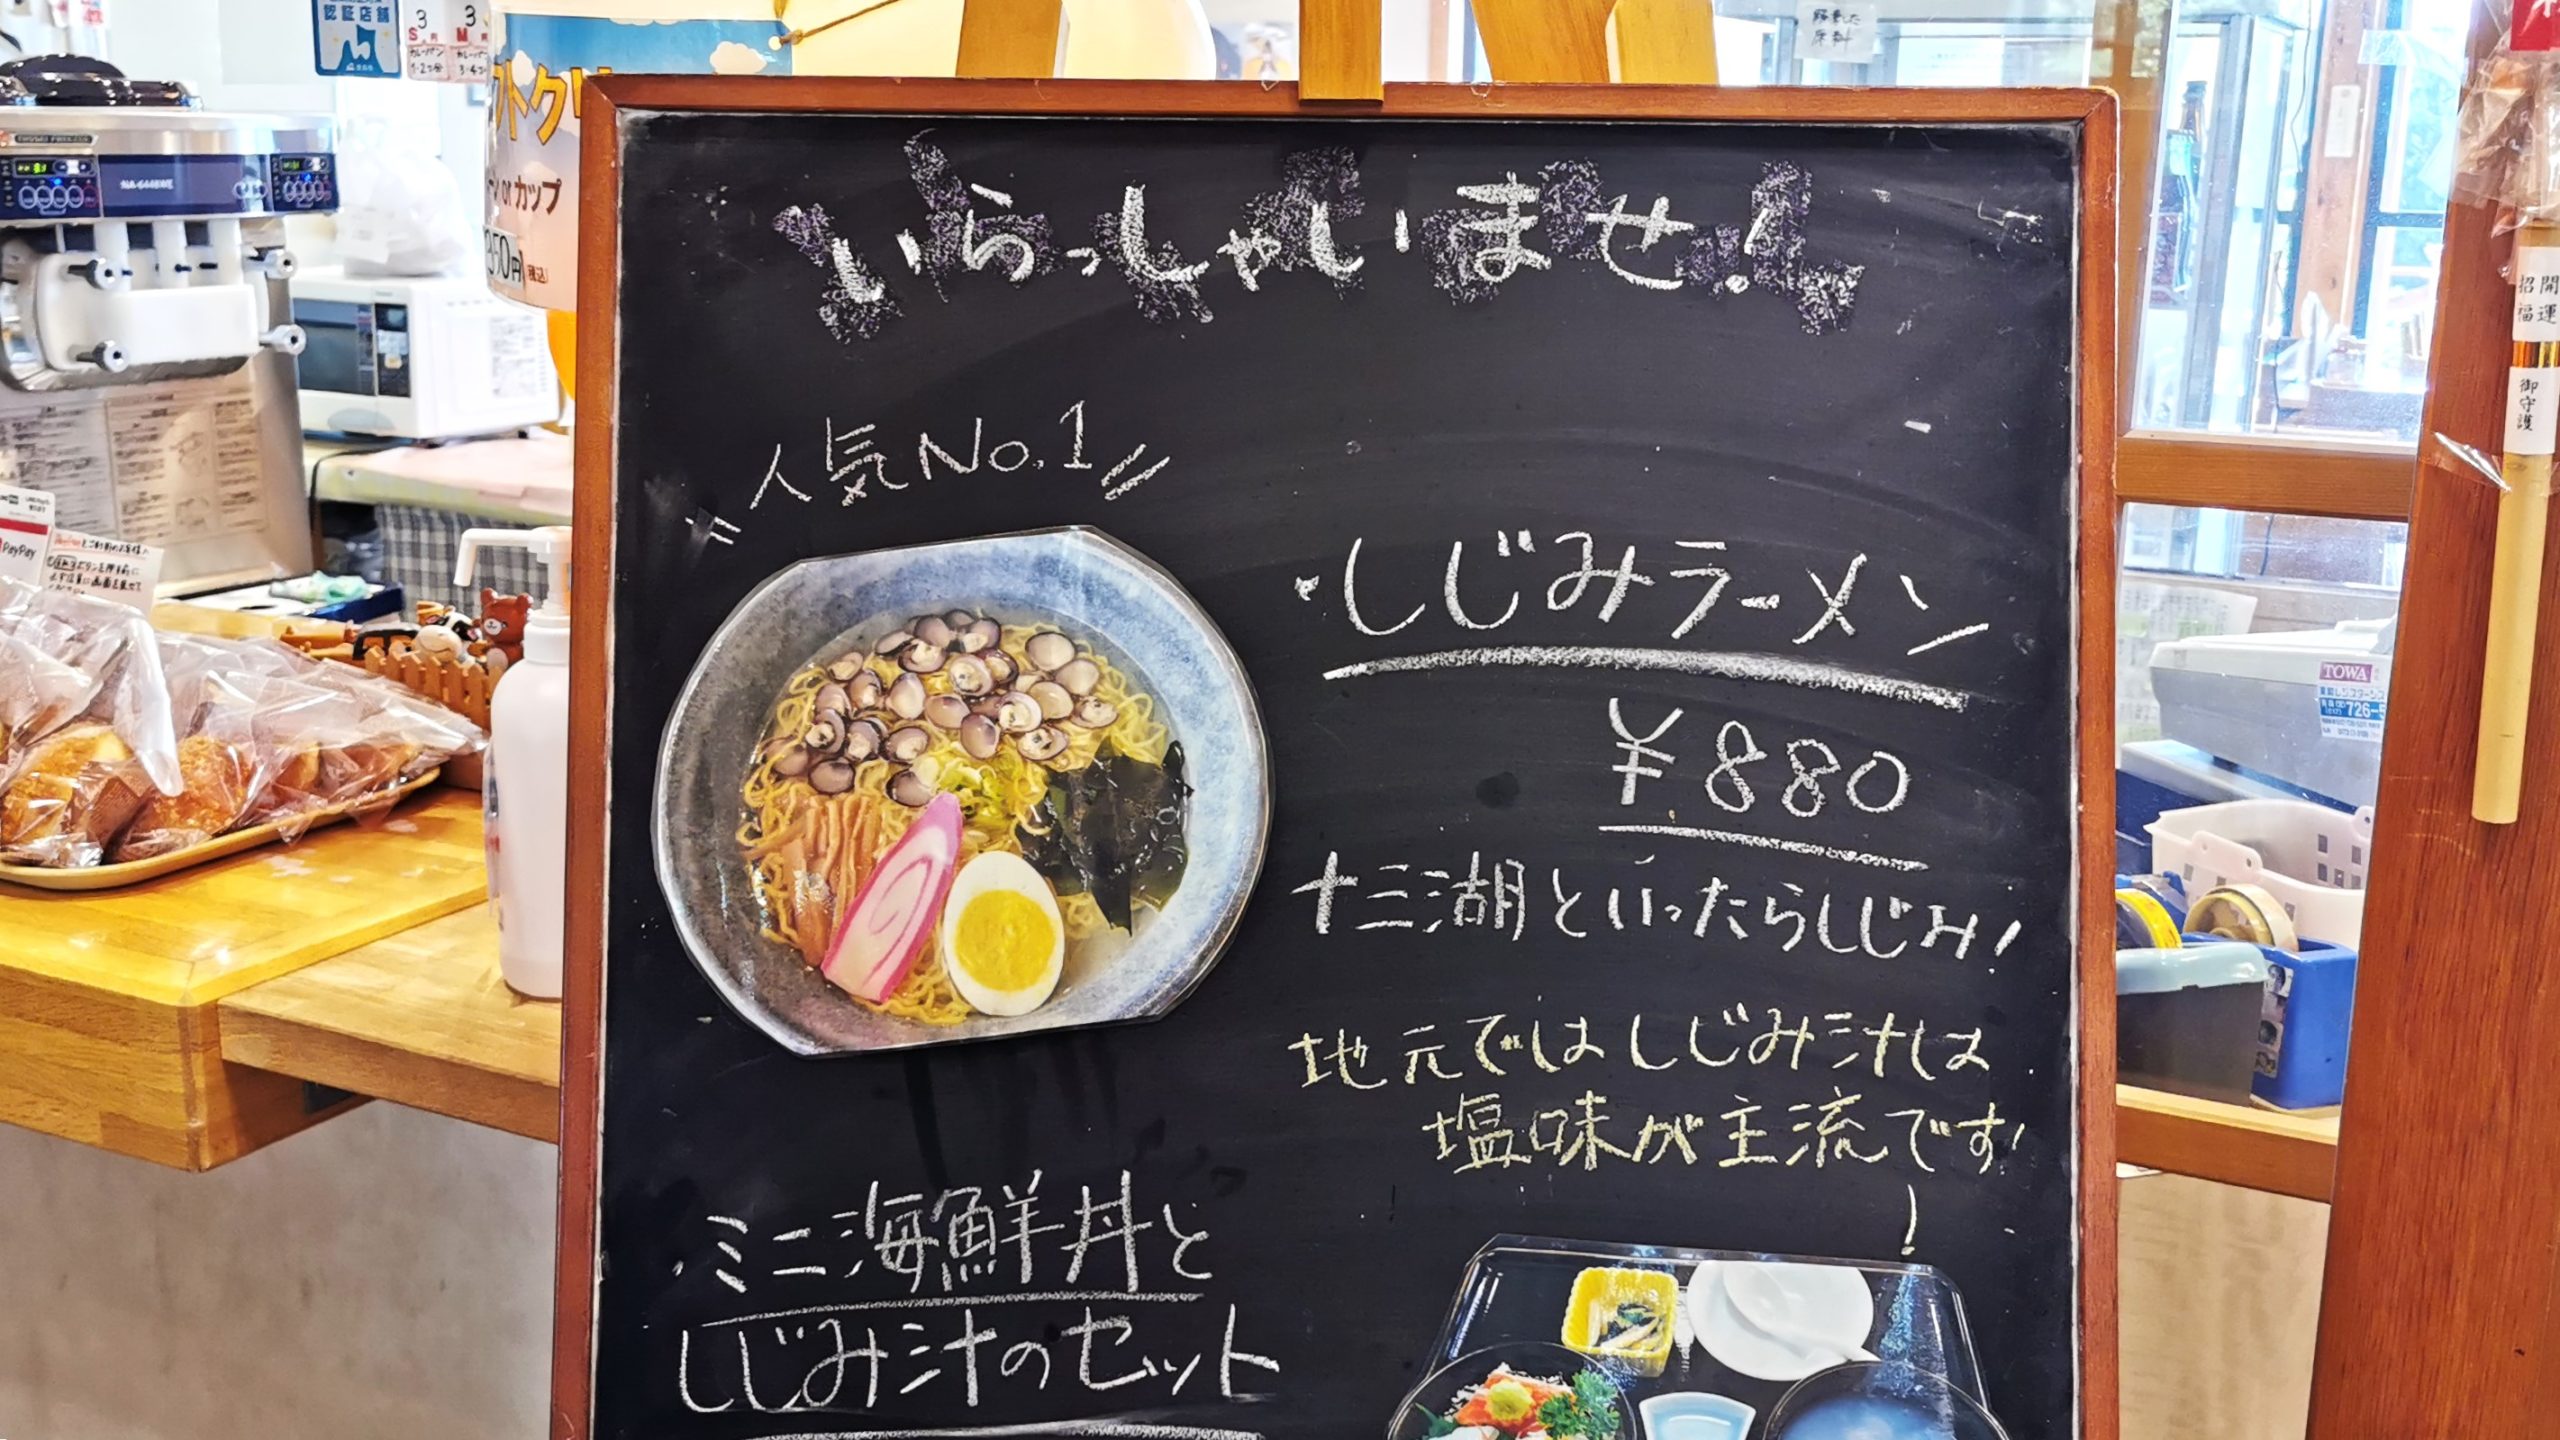 認証店舗
NA-6448WE
or カップ
350円(税込)
PayPay
いらっしゃいませ!
人気No.1
・しじみラーメン
¥880
十三湖といったらしじみ!
地元ではしじみ汁は
塩味が主流です!
・ミニ海鮮丼と
しじみ汁のセット
開運
招福
御守護
TOWA